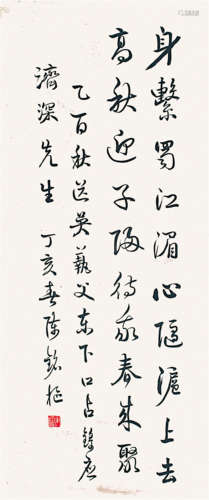 身繫蜀江湄心隨滬上去
高秋迎子歸待我春來聚
乙酉秋送吳藝父東下口占錄應
濟深先生 丁亥春陳銘樞